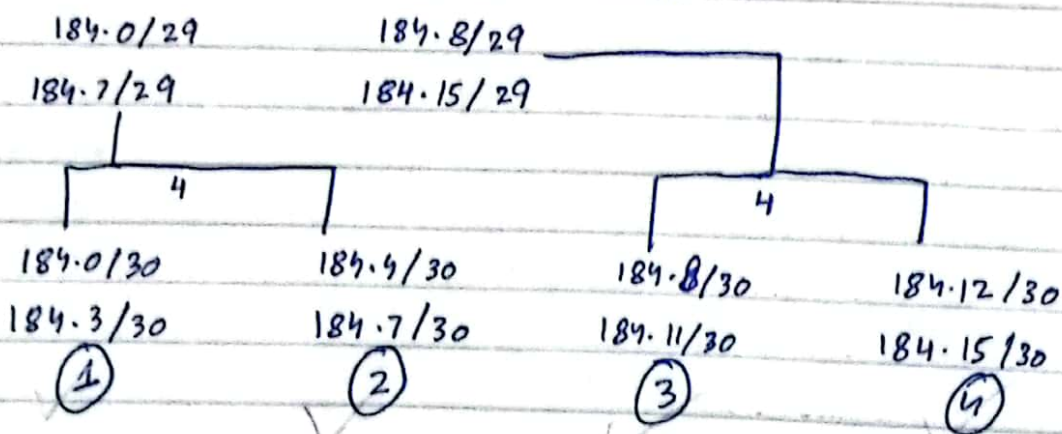 184.0/29 184.8/29
184.7/29 184.15/29
4 4
184.0/30 184.4/30 184.8/30 184.12/30
184.3/30 184.7/30 184.11/30 184.15/30
1 2 3 4